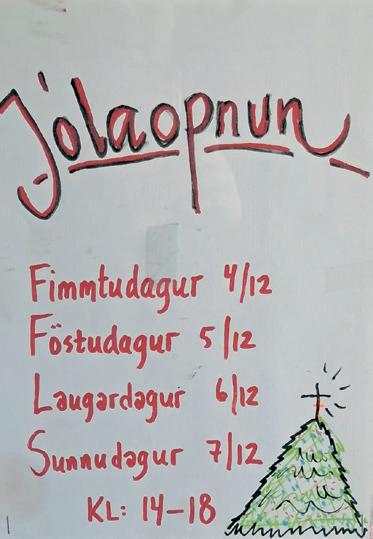 Jólaopnun
Fimmtudagur 4/12
Föstudagur 5/12
Laugardagur 6/12
Sunnudagur 7/12
KL: 14-18